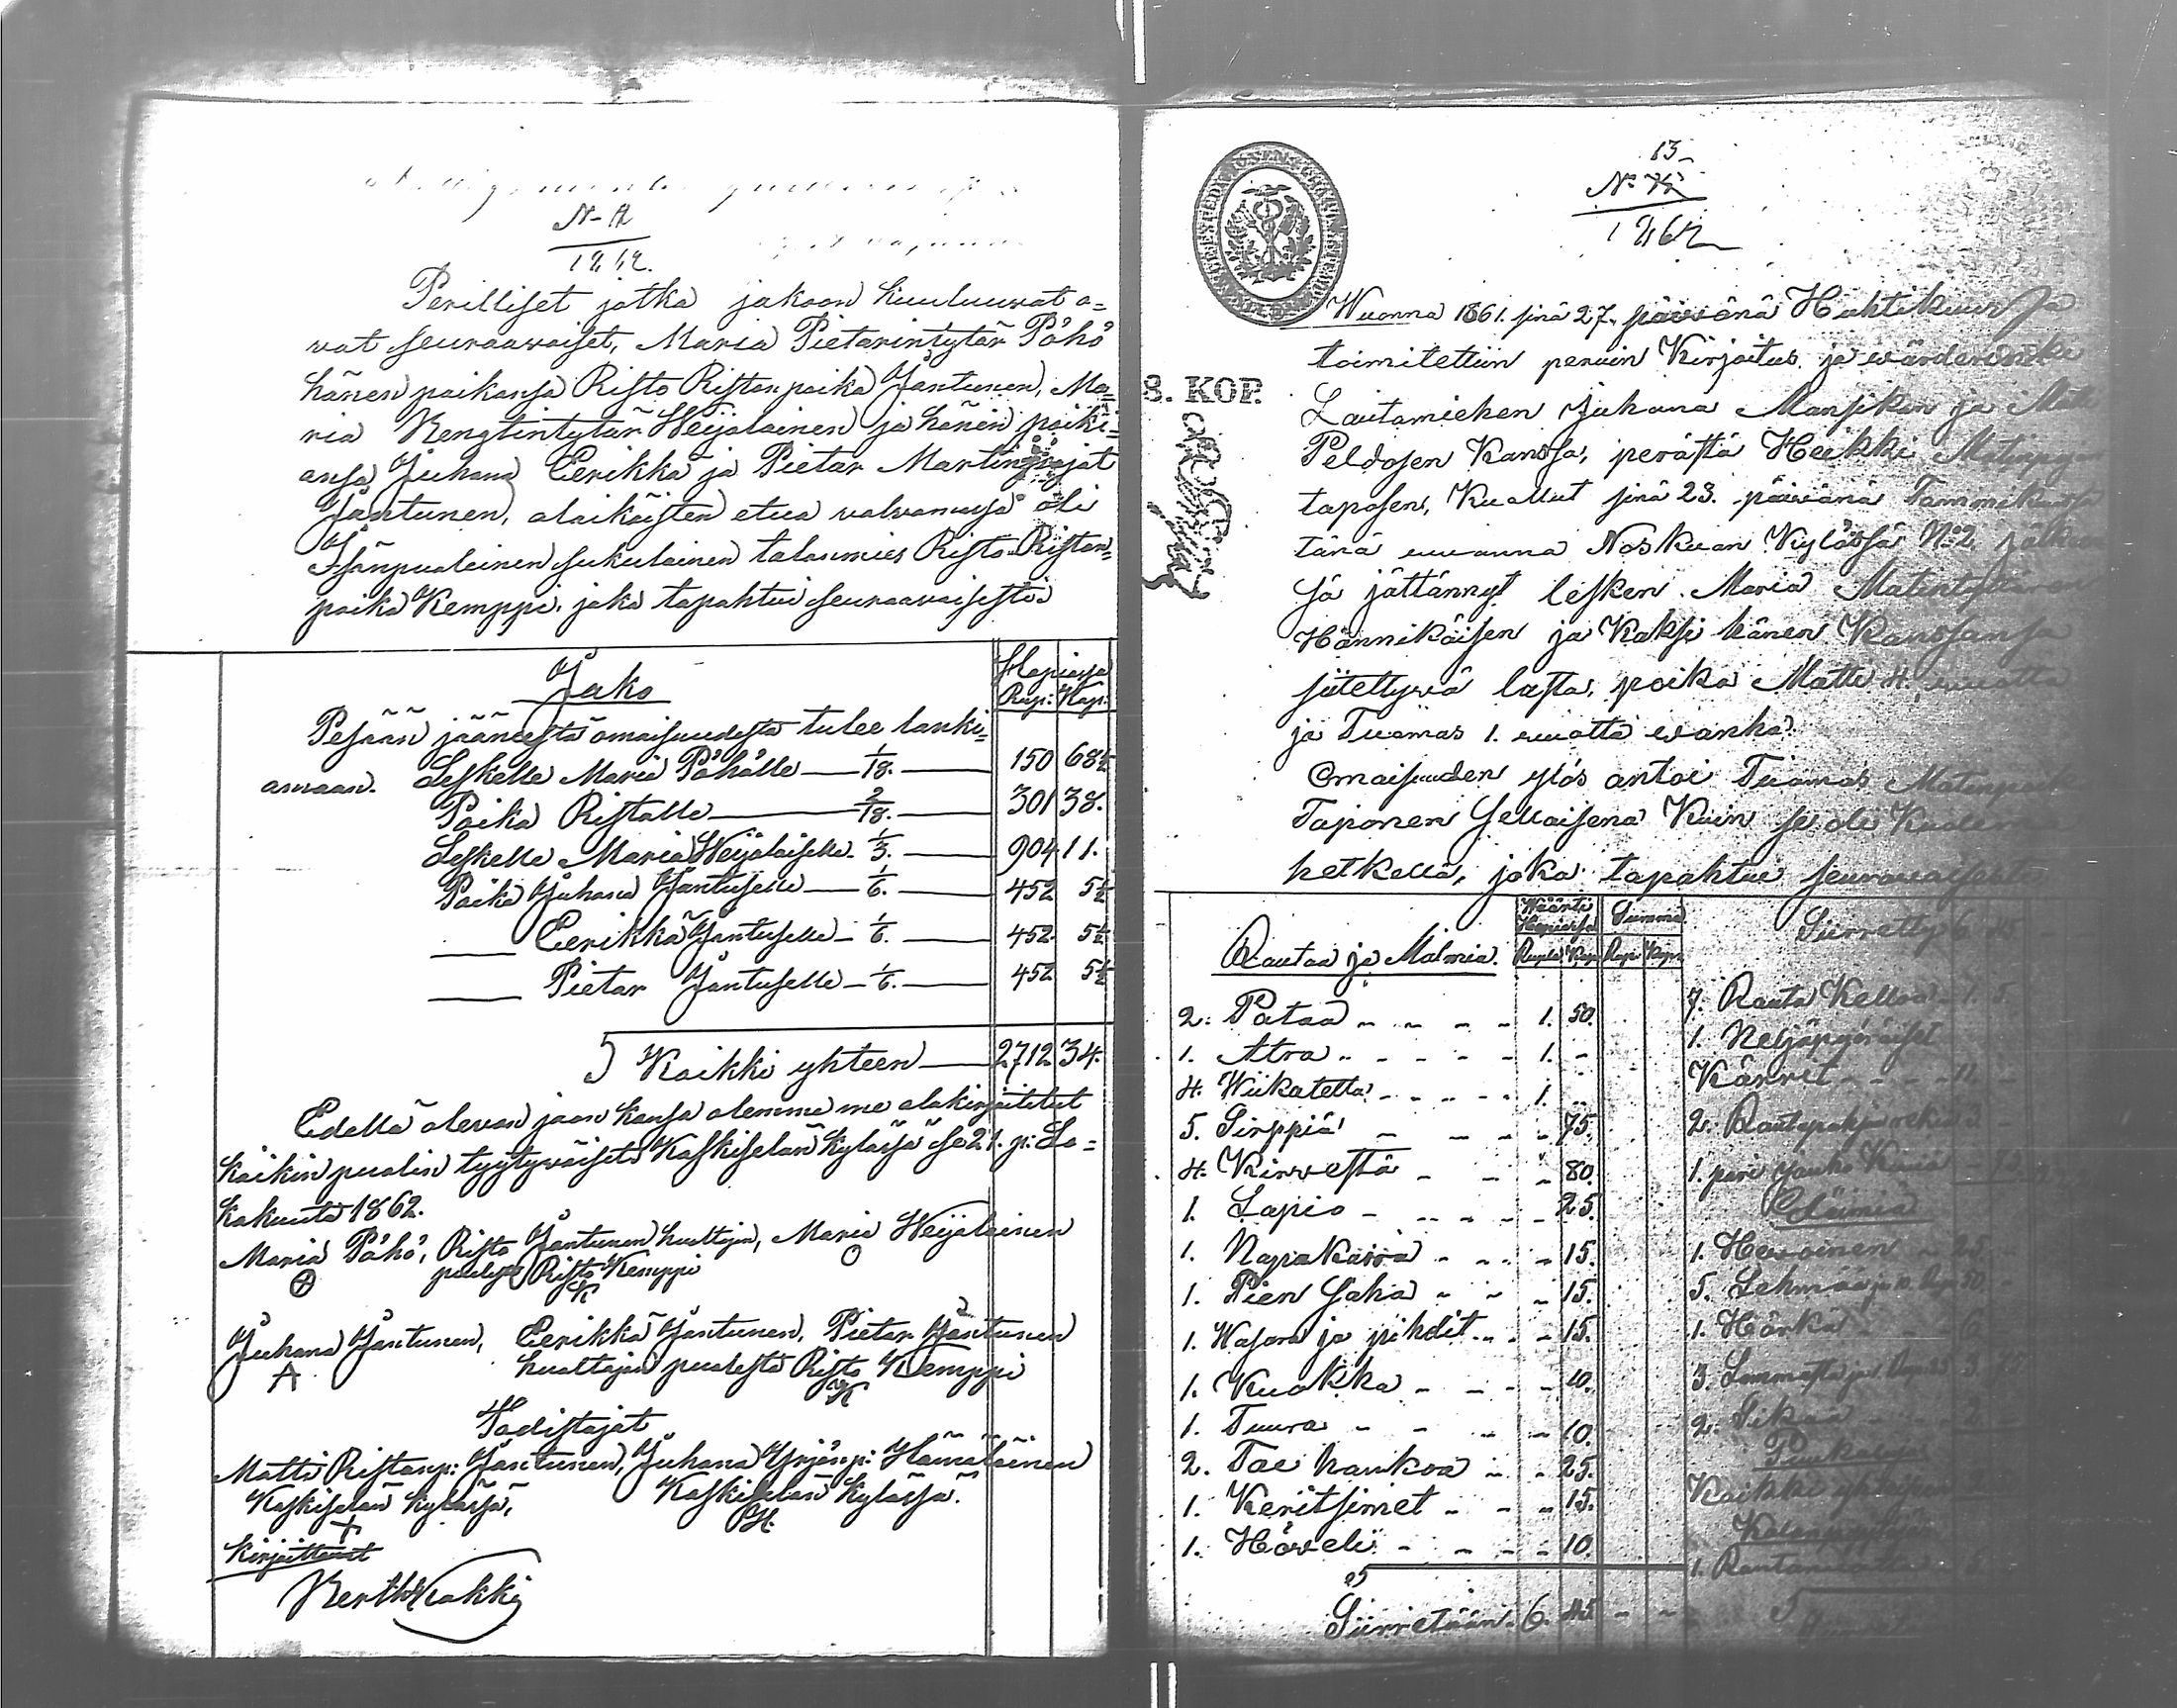 N-12
1862.
Perilliset jotka jakoon kuuluuvat o=
vat seuraavaiset, Maria Pietarintytär Pöhö
hänen poikansa Risto Ristonpoika Jantunen, Ma=
ria Bengtintytär Heijalainen ja hänen poiki=
ansa Juhana Eerikka ja Pietar Martinpojat
Jantunen, alaikäisten etua valvomassa oli
Isänpualeinen sukulainen talonmies Risto Riston=
poika Kemppi, joka tapahtui seuraavaisesti
Jako
Hopiassa
Rup: Kop:
Pesään jääneestä omaisuudesta tulee lanki=
amaan. Leskelle Maria Pöhölle 1/18. 150 68½
Poika Ristolle 2/18. 301 38.
Leskelle Maria Heijalaiselle 1/3. 904 11.
Poika Juhana Jantuselle 1/6. 452 5½
Eerikka Jantuselle 1/6. 452 5½
Pietar Jantuselle 1/6. 452 5½
Kaikki yhteen 2712 34.
Edellä olevan jaon kansa olemme me alakirjoitetut
kaikin pualin tyytyväiset Kaskiselän kylässä se 21. p: Lo=
kakuuta 1862.
Maria Pöhö, Risto Jantunen huoltaja, Maria Heijalainen
puolesta Risto Kemppi
K
Juhana Jantunen, Eerikka Jantunen, Pietar Jantunen
A huoltajan puolesta Risto Kemppi
K
Todistajat
Matti Ristonp: Jantunen, Juhana Yrjönp: Hämäläinen
Kaskiselän kylässä, Kaskiselän kylässä.
kirjoittanut
13
No 12
1862
8. KOP.
Wuonna 1861. sinä 27. päivänä Huhtikuusa
toimitettiin peruin Kirjoitus ja wärderinki
Lautamiehen Juhana Mansiken ja Matti
Peldosen Kanssa, perästä Heikki Matinpoj
taposen, Kuollut sinä 23. päivänä Tammikuusa
tänä wuonna Noskuan Kylässä No 2 jälken
sä jättännyt lesken Maria Matintyttären
Hännikäisen ja Kaksi hänen Kanssansa
siitettyvä lasta, poika Matti 4. wuotta
ja Tuomas 1. wuotta wanha.
Omaisuuden ylös antoi Tuomas Matinpoika
Taponen Sellaisena Kuin se oli Kuoleman
hetkellä, joka tapahtui seuraavaisesti
Rautaa ja Malmia.
Wäänti Hopiassa Summa
Rupla Kop Rup: Kop:
2. Pataa 1. 50.
1. Atra 1. -
4. Wiikatetta 1. -
5. Sirppiä 75.
4. Kirvestä 80.
1. Lapio 25.
1. Napakaira 15.
1. Pien Saha 15.
1. Wasara ja pihdit 15.
1. Kuokka 10.
1. Tuura 10.
2. Tae hankoa 25.
1. Keritsimet 15.
1. Höveli 10.
Siirretään 6. 45
Siirretty 6 45
7. Rauta Kelloa 1. 5
1. Neljäpyöräiset
Kärret
2. Rautapohja rekiä 3
1. pari Jauho Kiviä
Eläimiä
1. Hevoinen 25
5. Lehmää
1. Härkä
3. Lammasta
2. Sikaa 2
Puukaluja
Kaikki